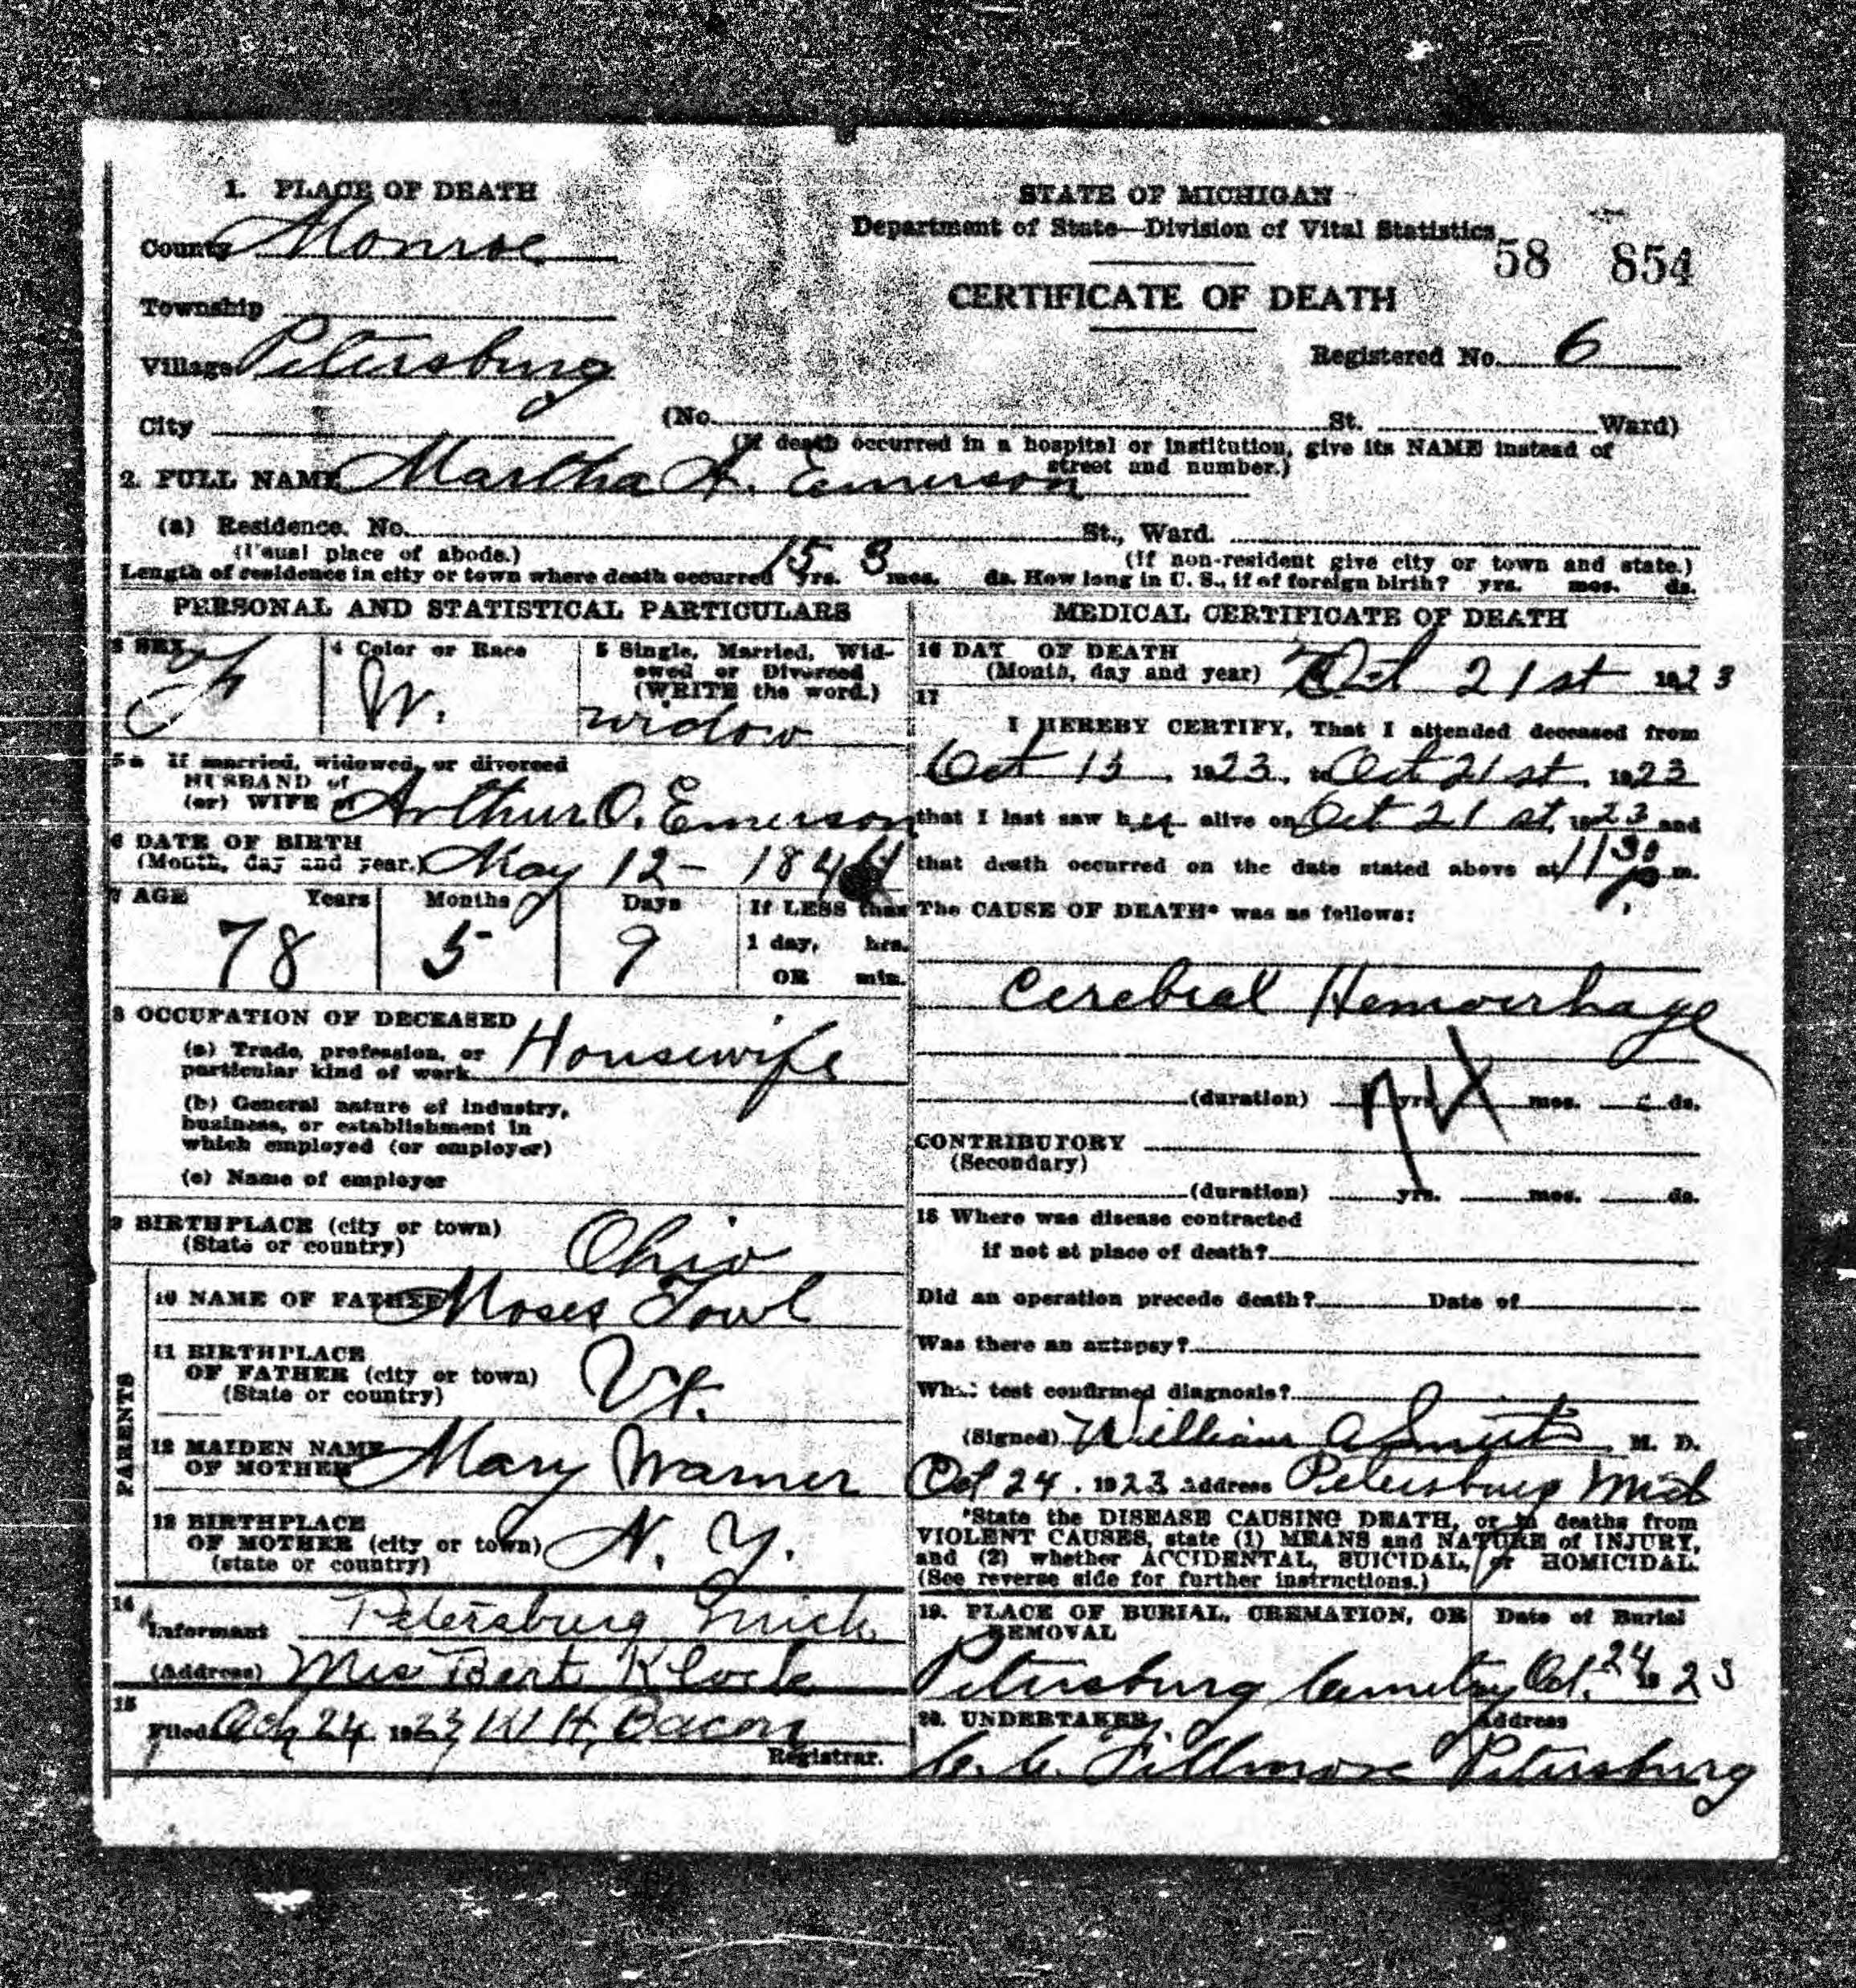 1. PLACE OF DEATH
County Monroe
Township
Village Petersburg
City
STATE OF MICHIGAN
Department of State—Division of Vital Statistics
58 854
CERTIFICATE OF DEATH
Registered No. 6
(No. St. Ward)
(If death occurred in a hospital or institution, give its NAME instead of
street and number.)
2. FULL NAME Martha A. Emerson
(a) Residence. No. St., Ward.
(Usual place of abode.) (If non-resident give city or town and state.)
Length of residence in city or town where death occurred 15 yrs. 3 mos. ds. How long in U. S., if of foreign birth? yrs. mos. ds.
PERSONAL AND STATISTICAL PARTICULARS
3 SEX
F
4 Color or Race
W.
5 Single, Married, Wid-
owed or Divorced
(WRITE the word.)
widow
5a If married, widowed, or divorced
HUSBAND of
(or) WIFE of Arthur O. Emerson
6 DATE OF BIRTH
(Month, day and year.) May 12 - 184
7 AGE Years Months Days
78 5 9
If LESS than
1 day, hrs.
OR min.
8 OCCUPATION OF DECEASED
(a) Trade, profession, or
particular kind of work Housewife
(b) General nature of industry,
business, or establishment in
which employed (or employer)
(c) Name of employer
9 BIRTHPLACE (city or town)
(State or country) Ohio
PARENTS
10 NAME OF FATHER Moses Towl
11 BIRTHPLACE
OF FATHER (city or town)
(State or country) Vt.
12 MAIDEN NAME
OF MOTHER Mary Warner
13 BIRTHPLACE
OF MOTHER (city or town)
(state or country) N. Y.
14
Informant Petersburg Mich.
(Address) Mrs Bert Klock
15
Filed Oct 24 1923, W H, Bacon
Registrar.
MEDICAL CERTIFICATE OF DEATH
16 DAT OF DEATH
(Month, day and year) Oct 21st 1923
17
I HEREBY CERTIFY, That I attended deceased from
Oct 13, 1923, to Oct 21st, 1923
that I last saw her alive on Oct 21st, 1923 and
that death occurred on the date stated above at 11 30 P. m.
The CAUSE OF DEATH* was as follows:
Cerebral Hemorrhage
(duration) yrs. mos. ds.
CONTRIBUTORY
(Secondary)
(duration) yrs. mos. ds.
18 Where was disease contracted
if not at place of death?
Did an operation precede death? Date of
Was there an autopsy?
What test confirmed diagnosis?
(Signed) William A M. D.
Oct 24, 1923 Address Petersburg Mich
*State the DISEASE CAUSING DEATH, or in deaths from
VIOLENT CAUSES, state (1) MEANS and NATURE of INJURY,
and (2) whether ACCIDENTAL, SUICIDAL, or HOMICIDAL.
(See reverse side for further instructions.)
19. PLACE OF BURIAL, CREMATION, OR
REMOVAL
Date of Burial
Petersburg Cemetry Oct. 24 1923
20. UNDERTAKER Address
C. C. Fillmore Petersburg